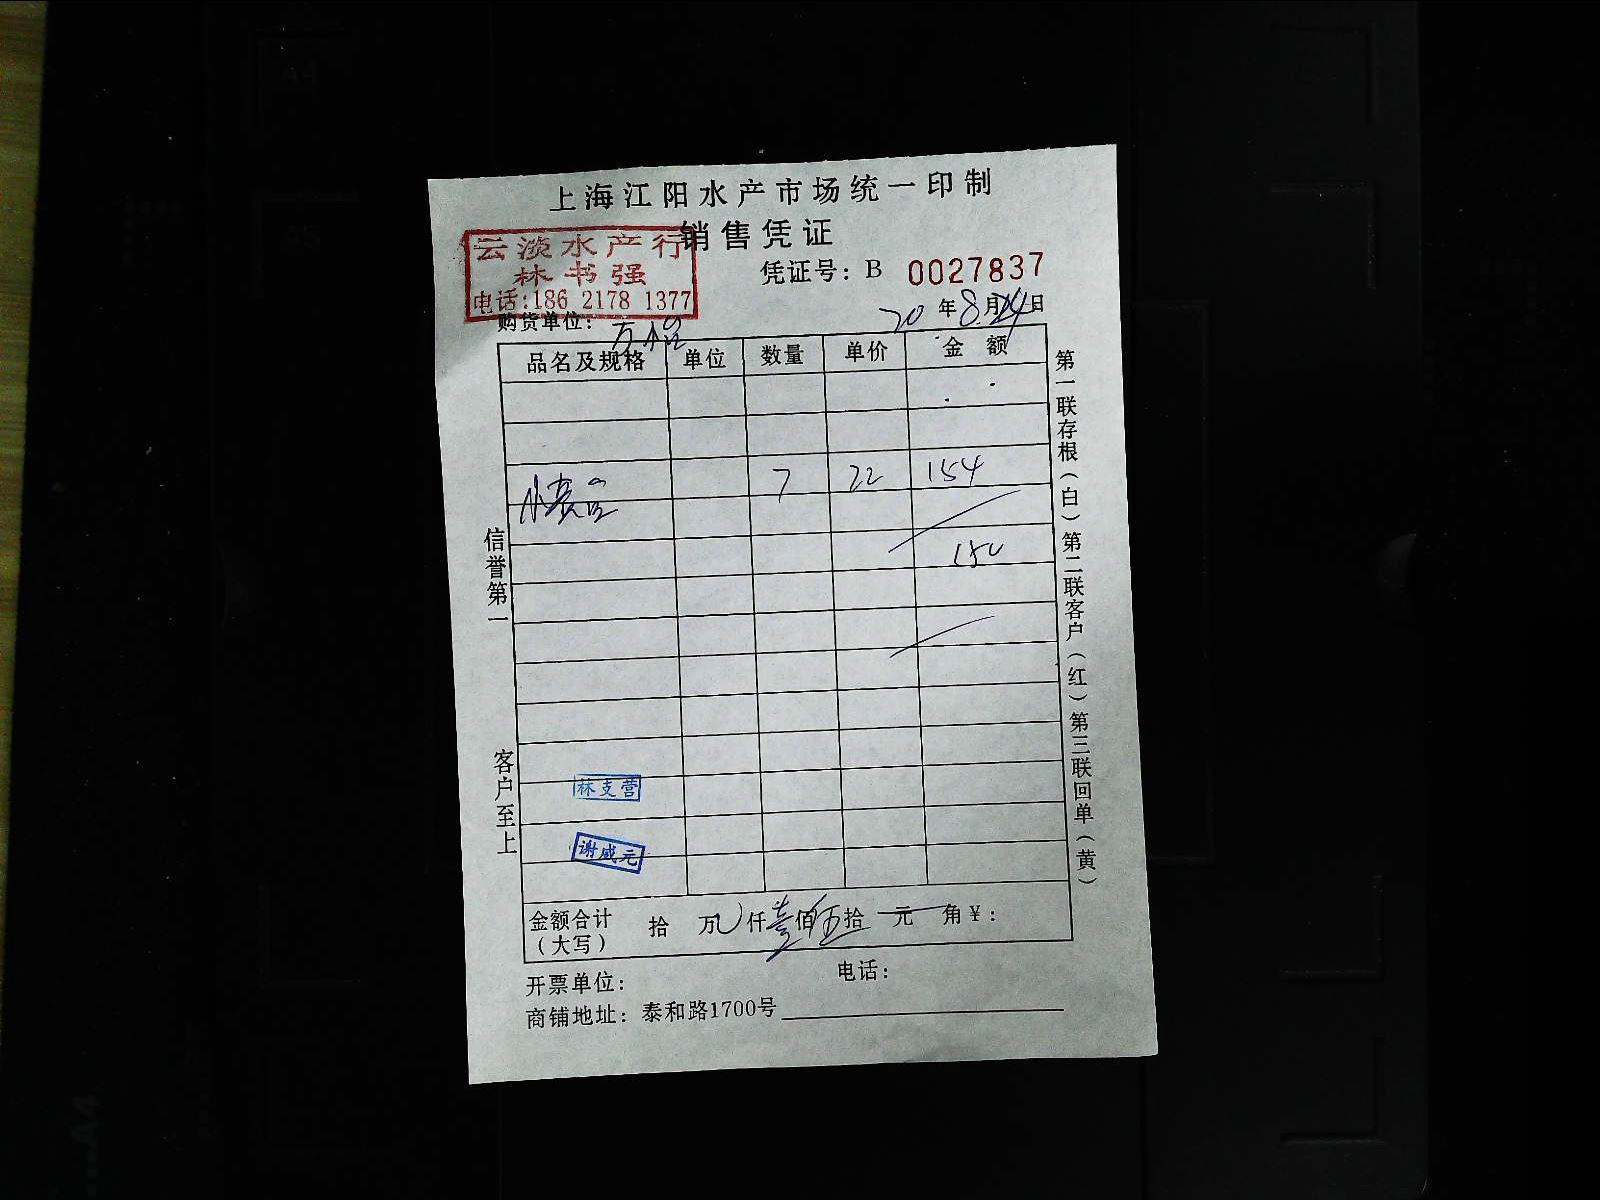 上海江阳水产市场统一印制
销售凭证
云淡水产行
林书强
电话:186 2178 1377
凭证号: B 0027837
20 年 8 月 24 日
购货单位:
品名及规格 单位 数量 单价 金额
7 22 154
150
林支营
谢咸元
金额合计(大写) 拾 万 仟 壹 佰 伍 拾 元 角 ¥:
开票单位: 电话:
商铺地址: 泰和路1700号
信誉第一
客户至上
第一联存根(白)第二联客户(红)第三联回单(黄)